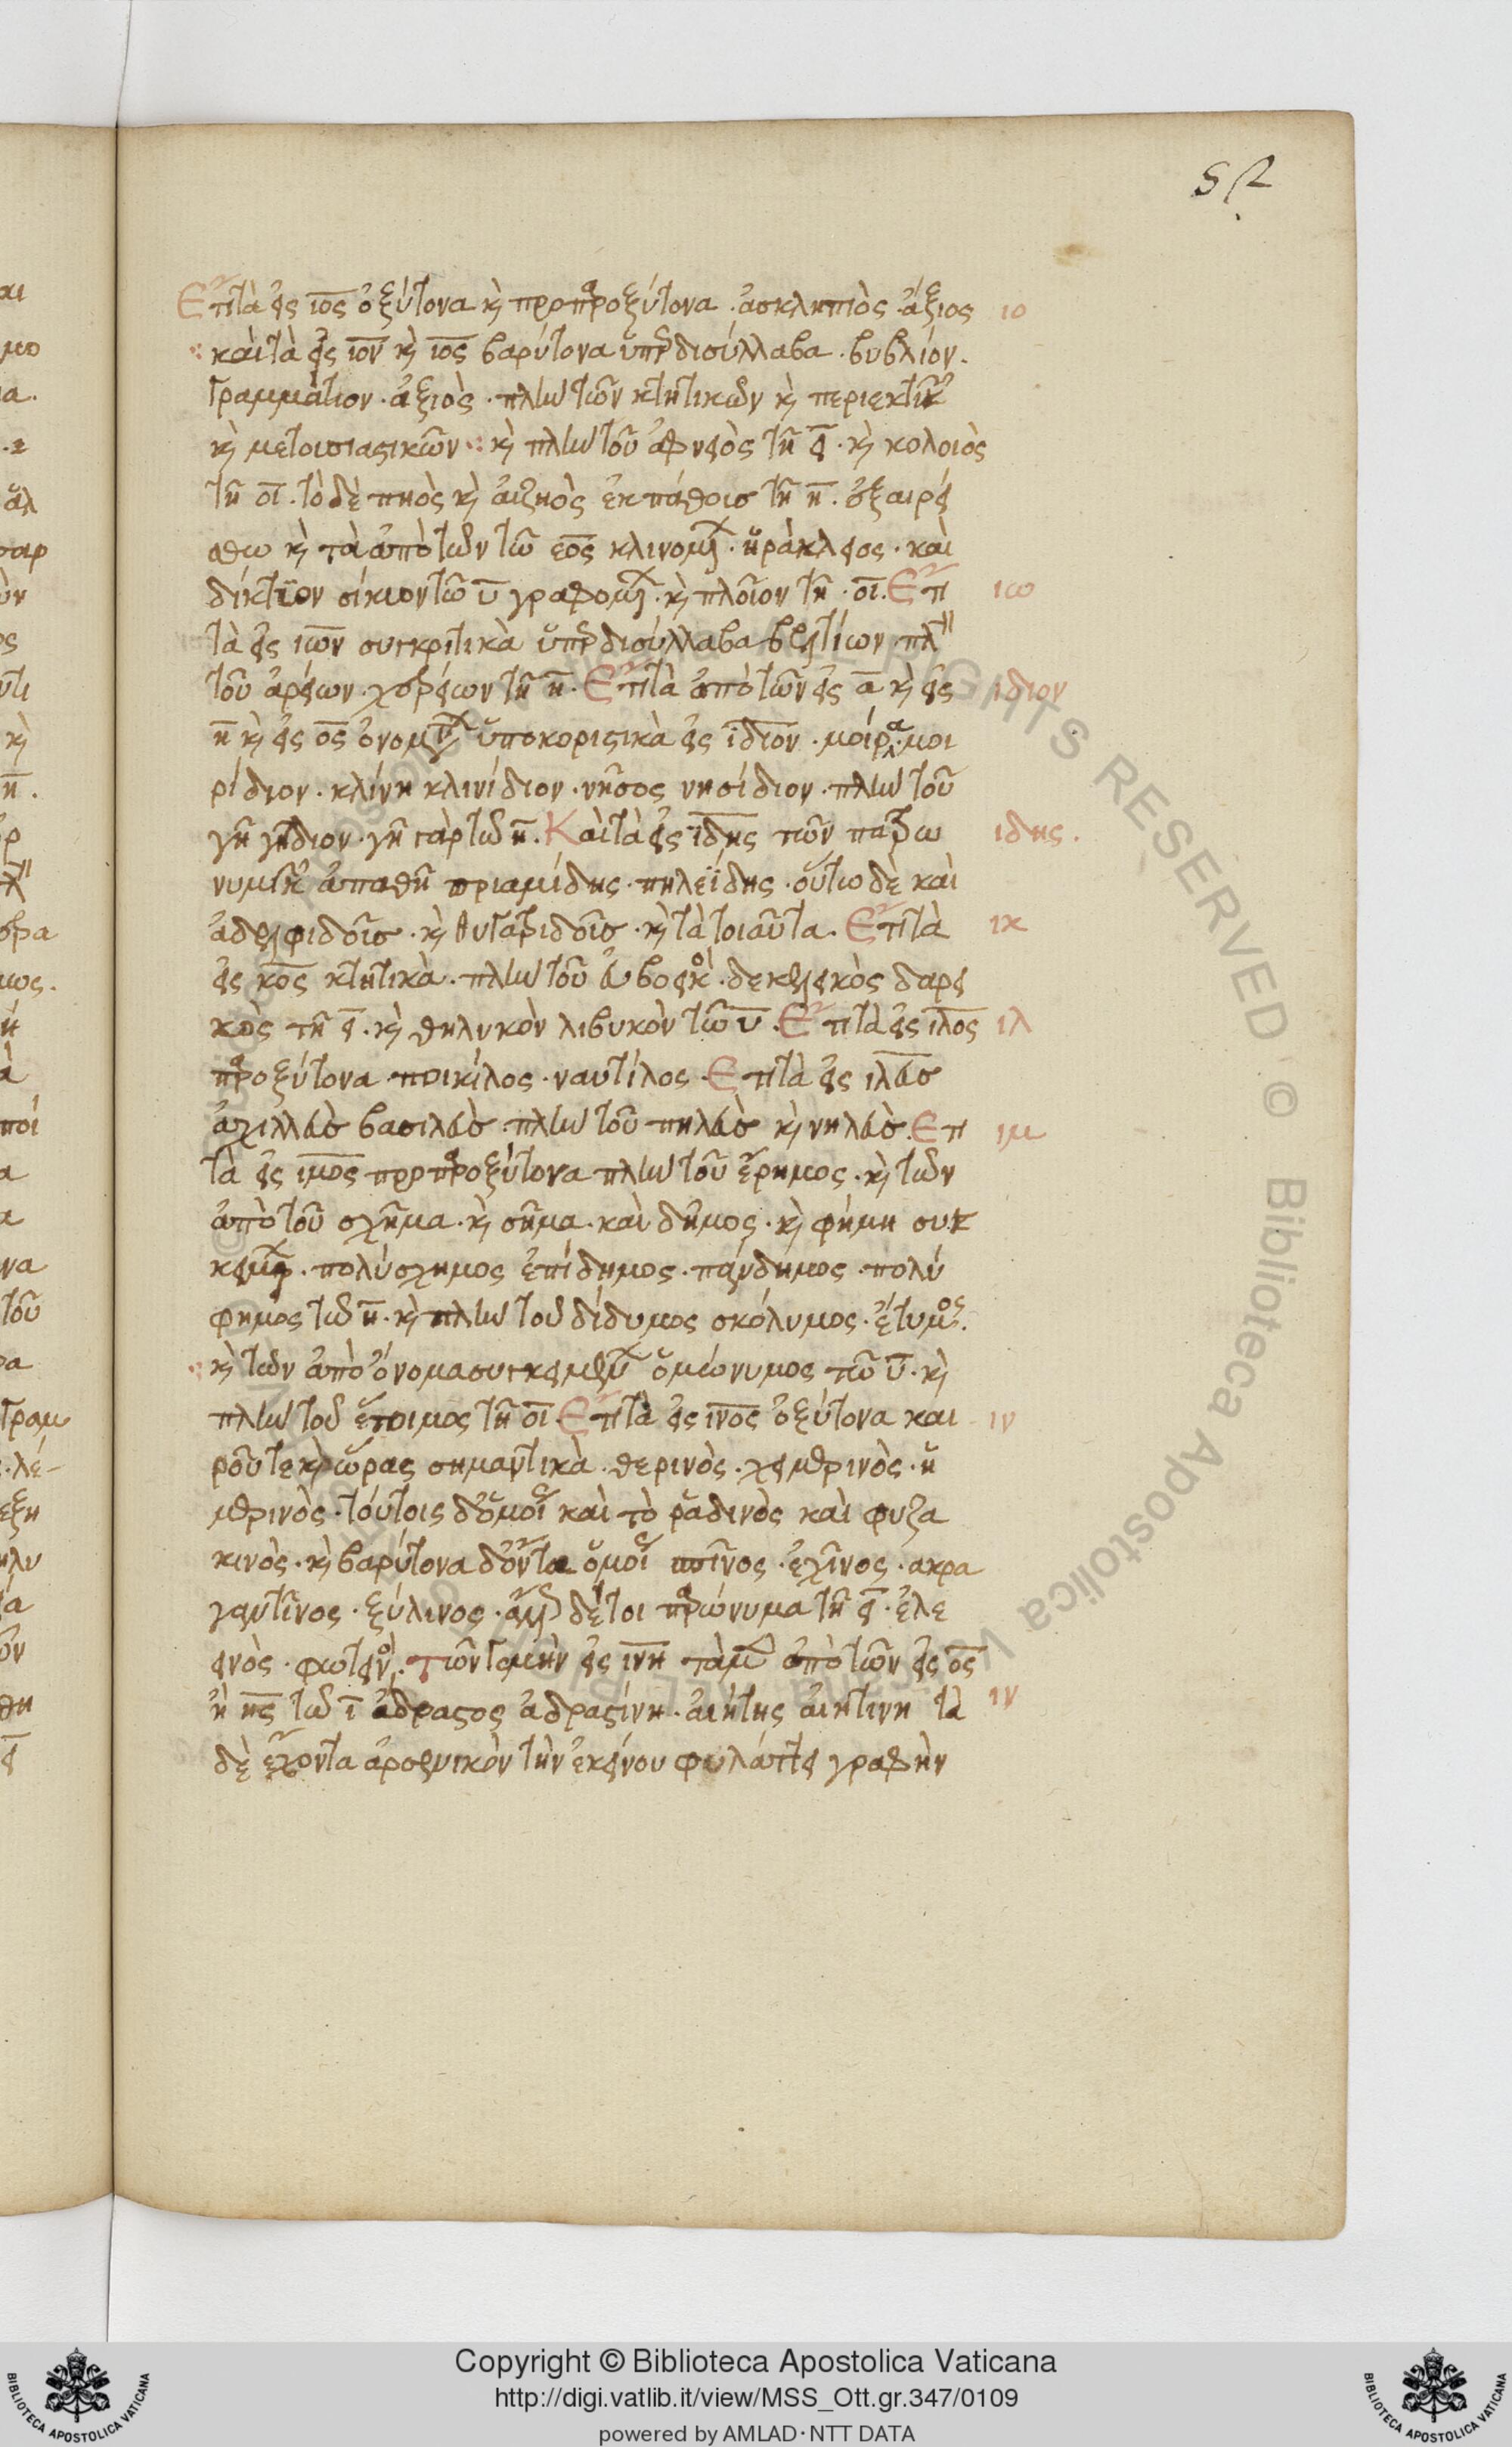 52
Ἔτι τὰ εἰς ιος ὀξύτονα κὴ προπαροξύτονα . ἀσκληπιὸς . ἄξιος ιο
καὶ τὰ εἰς ιον κὴ ιος βαρύτονα ὑπὲρ δισύλλαβα . βυβλίον.
γραμμάτιον . ἀξιὸς . πλὴν τῶν κτητικῶν κὴ περιεκτικ
κὴ μετουσιαστικῶν κὴ πλὴν τοῦ ἀφνειὸς τῇ ει . κὴ κολοιὸς
τῇ οι . τὸ δὲ πηὸς κὴ αἰζηὸς ἐκ πάθους τῇ η . ἐξαιρεί
σθω κὴ τὰ ἀπὸ τῶν τῶ εος κλινομ . ἡράκλειος . καὶ
δίκτυον σίκυον τῶ υ γραφομ . κὴ πλοῖον τῇ . οι. Ἔτι ιω
τὰ εἰς ιων συγκριτικὰ ὑπὲρ δισύλλαβα βελτίων . πλ
τοῦ ἀρείων . χερείων τῇ η . Ἔτι τὰ ἀπὸ τῶν εἰς α κὴ εἰς ιδιον
η κὴ εἰς ος ὀνομ ὑποκοριστικὰ εἰς ιδιον . μοίρα . μοι
ρίδιον . κλίνη κλινίδιον . νῆσος νησίδιον . πλὴν τοῦ
γῆ γήδιον . γῆ γὰρ τῶ η . Καὶ τὰ εἰς ιδης τῶν πατρω ιδης.
νυμικ ἀπαθῆ πριαμίδης . πηλεΐδης . οὕτω δὲ καὶ
ἀδελφιδοῖς . κὴ θυγατριδοῖς . κὴ τὰ τοιαῦτα . Ἔτι τὰ ικ
εἰς κος κτητικὰ . πλὴν τοῦ εὐβοεικὸ . δεκελεικὸς δαρει
κὸς τῇ ει . κὴ θηλυκὸν λιβυκὸν τῶ υ . Ἔτι τὰ εἰς ιλος ιλ
παροξύτονα . ποικίλος . ναυτίλος . Ἔτι τὰ εἰς ιλευς
ἀχιλλεὺς βασιλεὺς . πλὴν τοῦ πηλεὺς κὴ νηλεὺς . Ἔτι ιμ
τὰ εἰς ιμος προπαροξύτονα πλὴν τοῦ ἔρημος . κὴ τῶν
ἀπὸ τοῦ σχῆμα . κὴ σῆμα . καὶ δῆμος . κὴ φήμη συγ
κειμ . πολύσχημος ἐπίδημος . πάνδημος . πολύ
φημος τῶ η . κὴ πλὴν τοῦ δίδυμος σκόλυμος . ἔτυμος.
κὴ τῶν ἀπὸ ὄνομα συγκειμεν ὁμώνυμος τῶ υ . κὴ
πλὴν τοῦ ἕτοιμος τῇ οι . Ἔτι τὰ εἰς ινος ὀξύτονα και ιν
ροῦ τε κὴ ὥρας σημαντικὰ . θερινὸς . χειμερινὸς . ἡ
μερινὸς . τούτοις δ' ὅμοι καὶ τὸ ῥαδινὸς καὶ φυζα
κινὸς . κὴ βαρύτονα δ' ὄντα ὅμοι πρῖνος . ἐχῖνος . ἀκρα
γαντῖνος . ξύλινος . δέ τοι παρώνυμα τῇ ει . ἐλε
εινὸς . φωτεινὸ . τῶν γε μὴν εἰς ινη τὰ μὲν ἀπὸ τῶν εἰς ος
ἢ ης τῶ ι ἄδραστος ἀδραστίνη . αἰήτης αἰητίνη τὰ ιν
δὲ ἔχοντα ἀρσενικὸν τὴν ἐκείνου φυλάττει γραφὴν
Copyright © Biblioteca Apostolica Vaticana
http://digi.vatlib.it/view/MSS_Ott.gr.347/0109
powered by AMLAD · NTT DATA